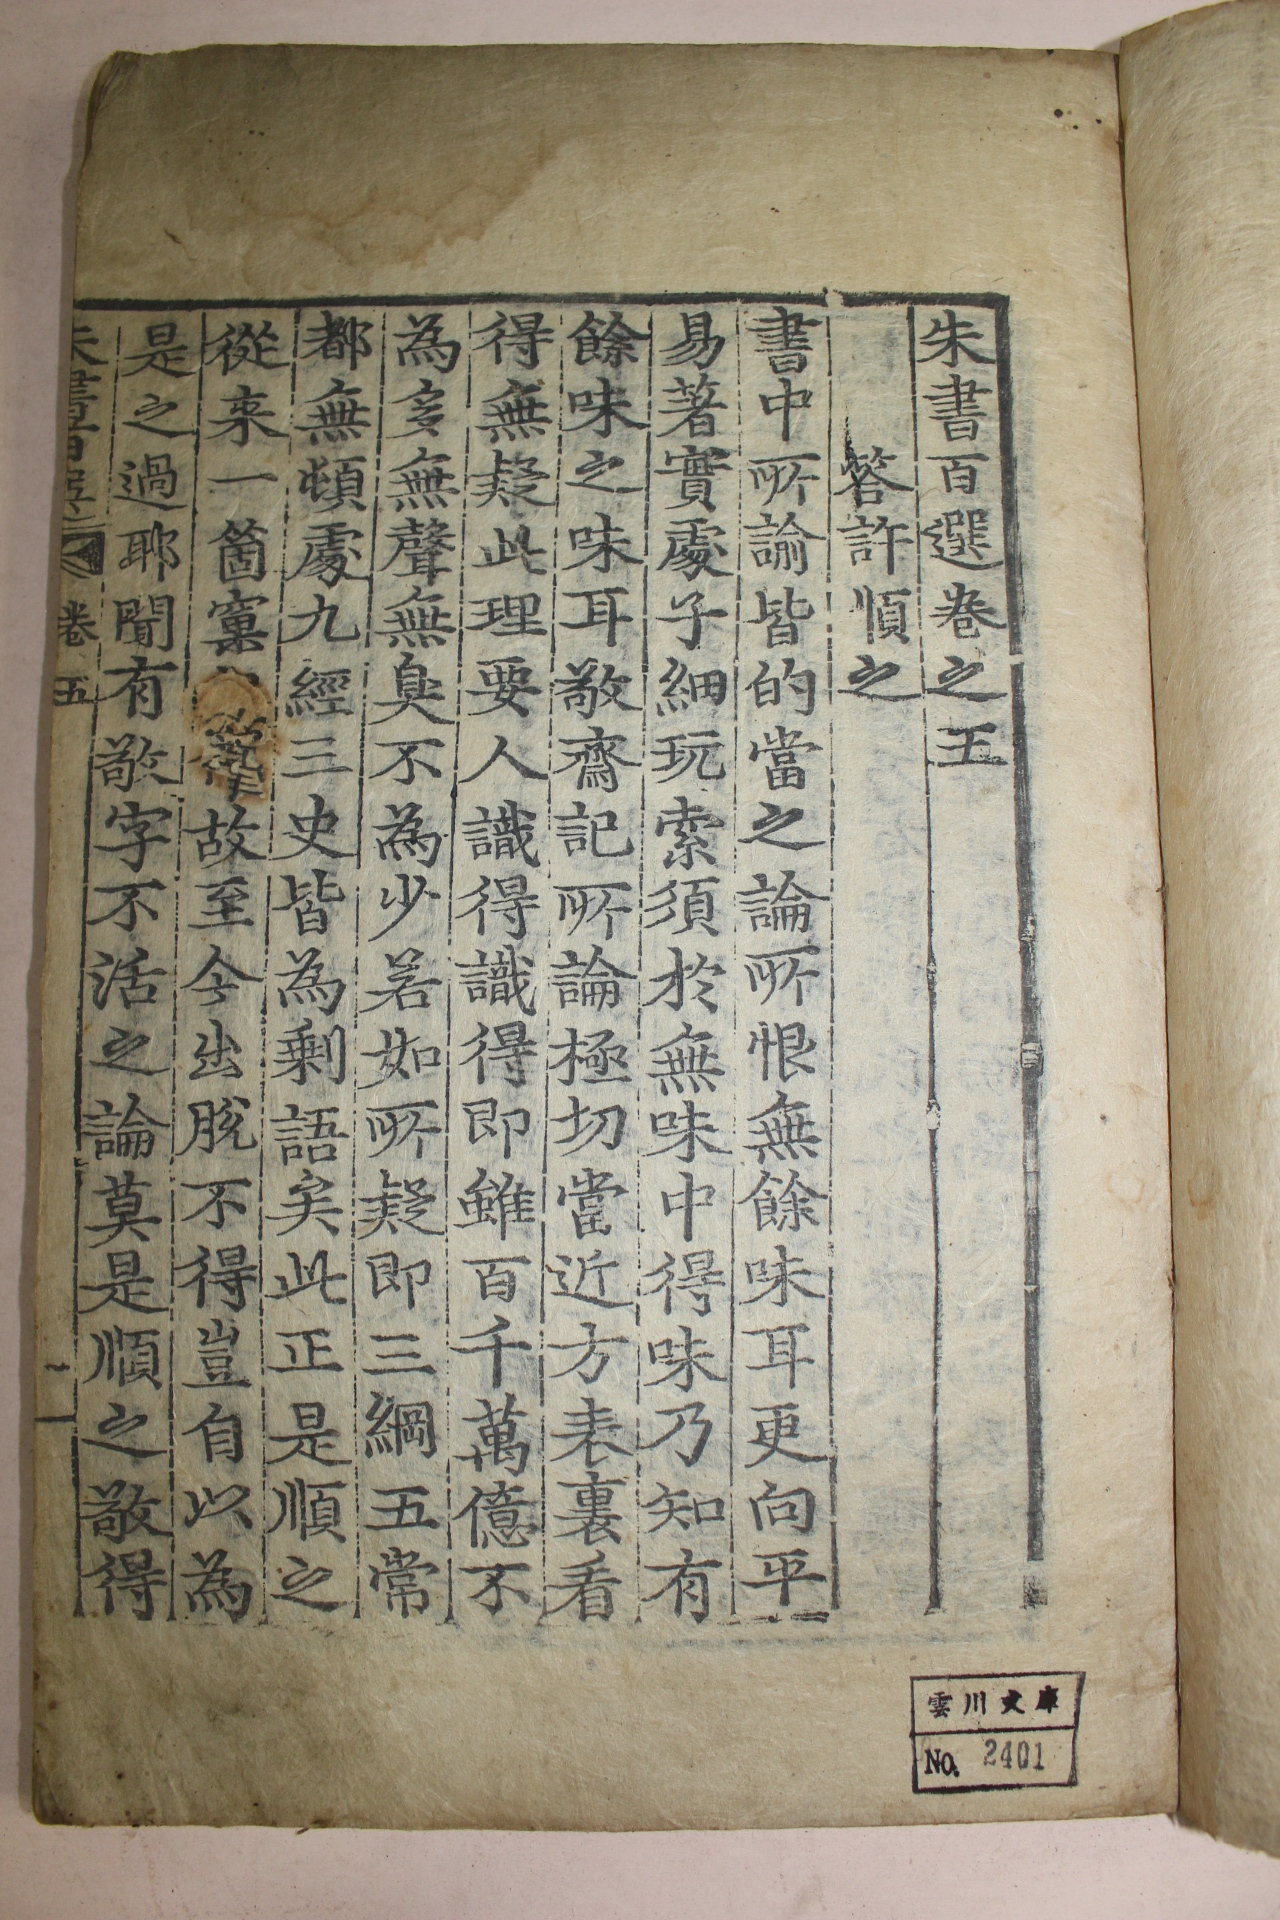 朱書百選卷之五
答許順之
書中所諭皆的當之論所恨無餘味耳更向平
易著實處子細玩索須於無味中得味乃知有
餘味之味耳敬齋記所論極切當近方表裏看
得無疑此理要人識得識得即雖百千萬億不
為多無聲無臭不為少若如所疑即三綱五常
都無頓處九經三史皆為剩語矣此正是順之
從来一箇窠 故至今出脫不得豈自以為
是之過耶聞有敬字不活之論莫是順之敬得
朱書百選 卷五
一
雲川文庫
No. 2401